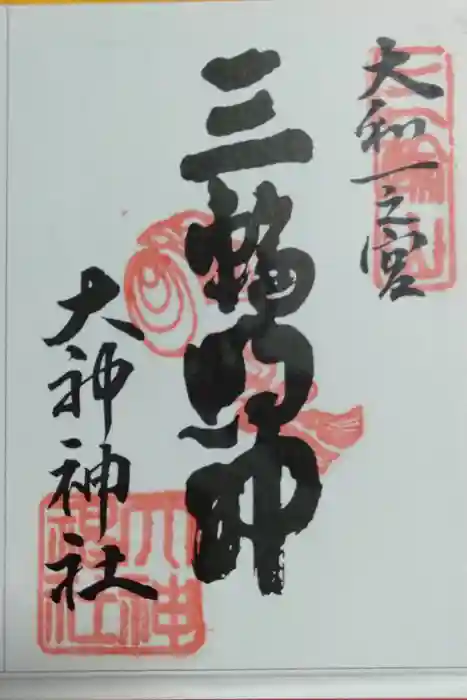 大和一之宮
三輪明神
大神神社
三輪山
大神
神社